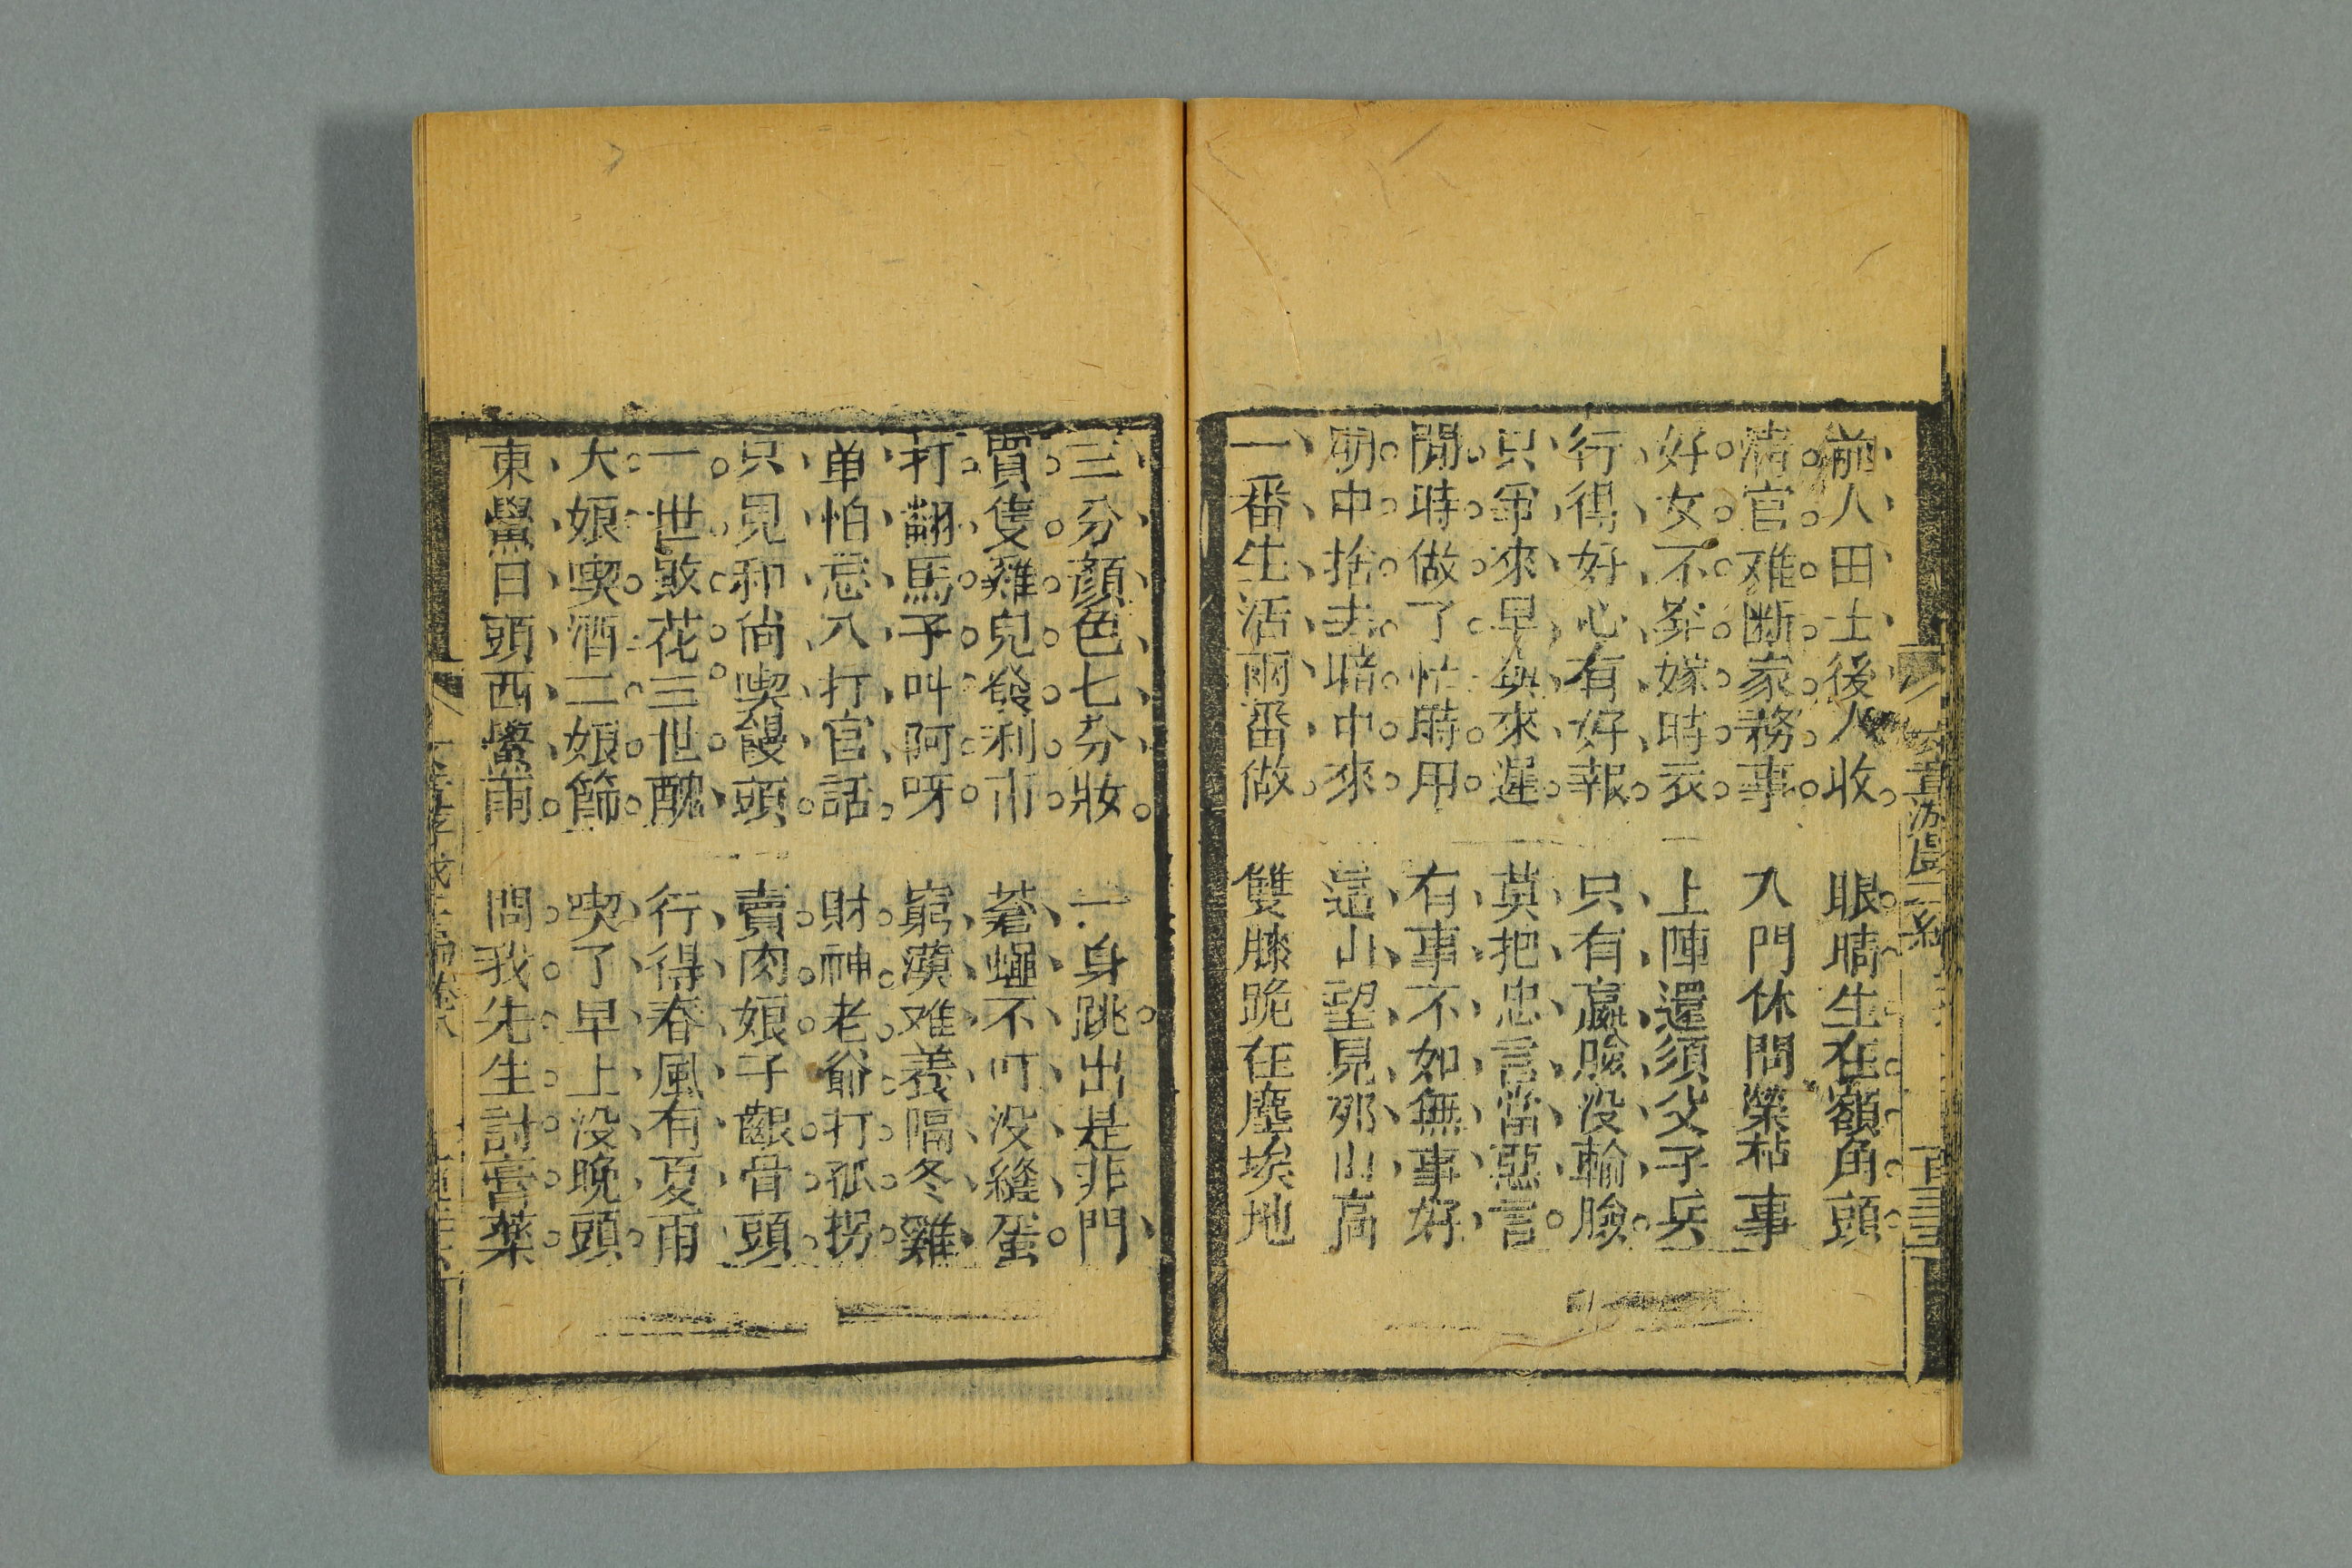 前人田土後人收 眼睛生在額角頭
清官难断家務事 入門休問榮枯事
好女不穿嫁時衣 上陣還須父子兵
行得好心有好報 只有嬴臉没輸臉
只爭來早與來遲 莫把忠言當惡言
閒時做了忙時用 有事不如無事好
明中捨去暗中來 這山望見那山高
一番生活兩番做 雙膝跪在塵埃地
三分顔色七分妝 一身跳出是非門
買隻雞兒發利市 蒼蠅不叮没縫蛋
打翻馬子叫阿呀 窮漢难養隔冬雞
单怕忘八打官話 財神老爺打孤拐
只見和尚喫饅頭 賣肉娘子齦骨頭
一世敗花三世醜 行得春風有夏雨
大娘喫酒二娘篩 喫了早上没晚頭
東鱟日頭西鱟雨 問我先生討膏薬